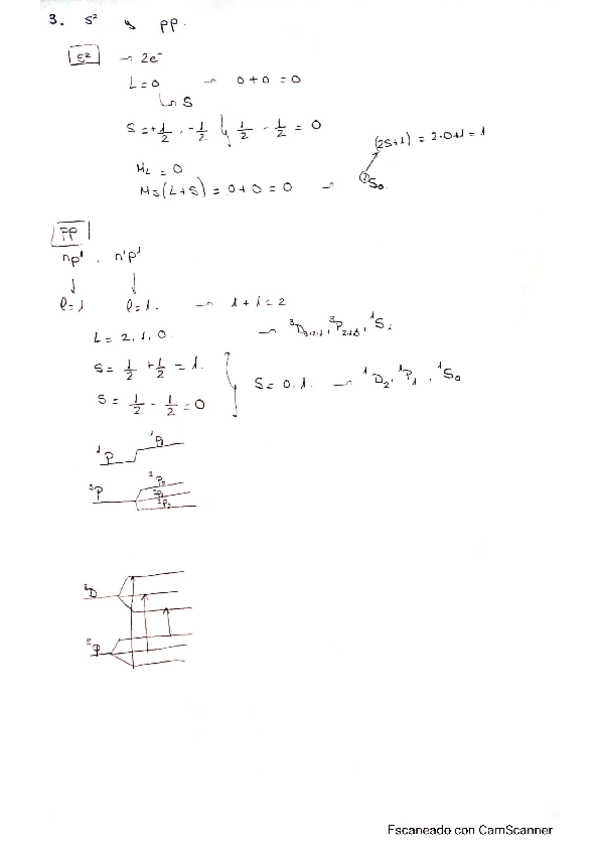 3. s² y pp.
s² ⇝ 2e⁻
L=0 ⇝ 0+0=0
↳ S
S=+1/2, -1/2 ↳ 1/2 - 1/2 = 0
(2S+1) = 2·0+1 = 1
M_L = 0
M_J(L+S) = 0+0 = 0 ⇝ ¹S₀
PP
np¹ . n'p¹
↓ ↓
l=1 l=1. ⇝ 1+1=2
L = 2, 1, 0. ⇝ ³D₃,₂,₁, ³P₂,₁,₀,
S= 1/2 + 1/2 = 1.
S= 0,1. ⇝ ¹D₂, ¹P₁, ¹S₀
S= 1/2 - 1/2 = 0
¹P
³P
³D
Escaneado con CamScanner